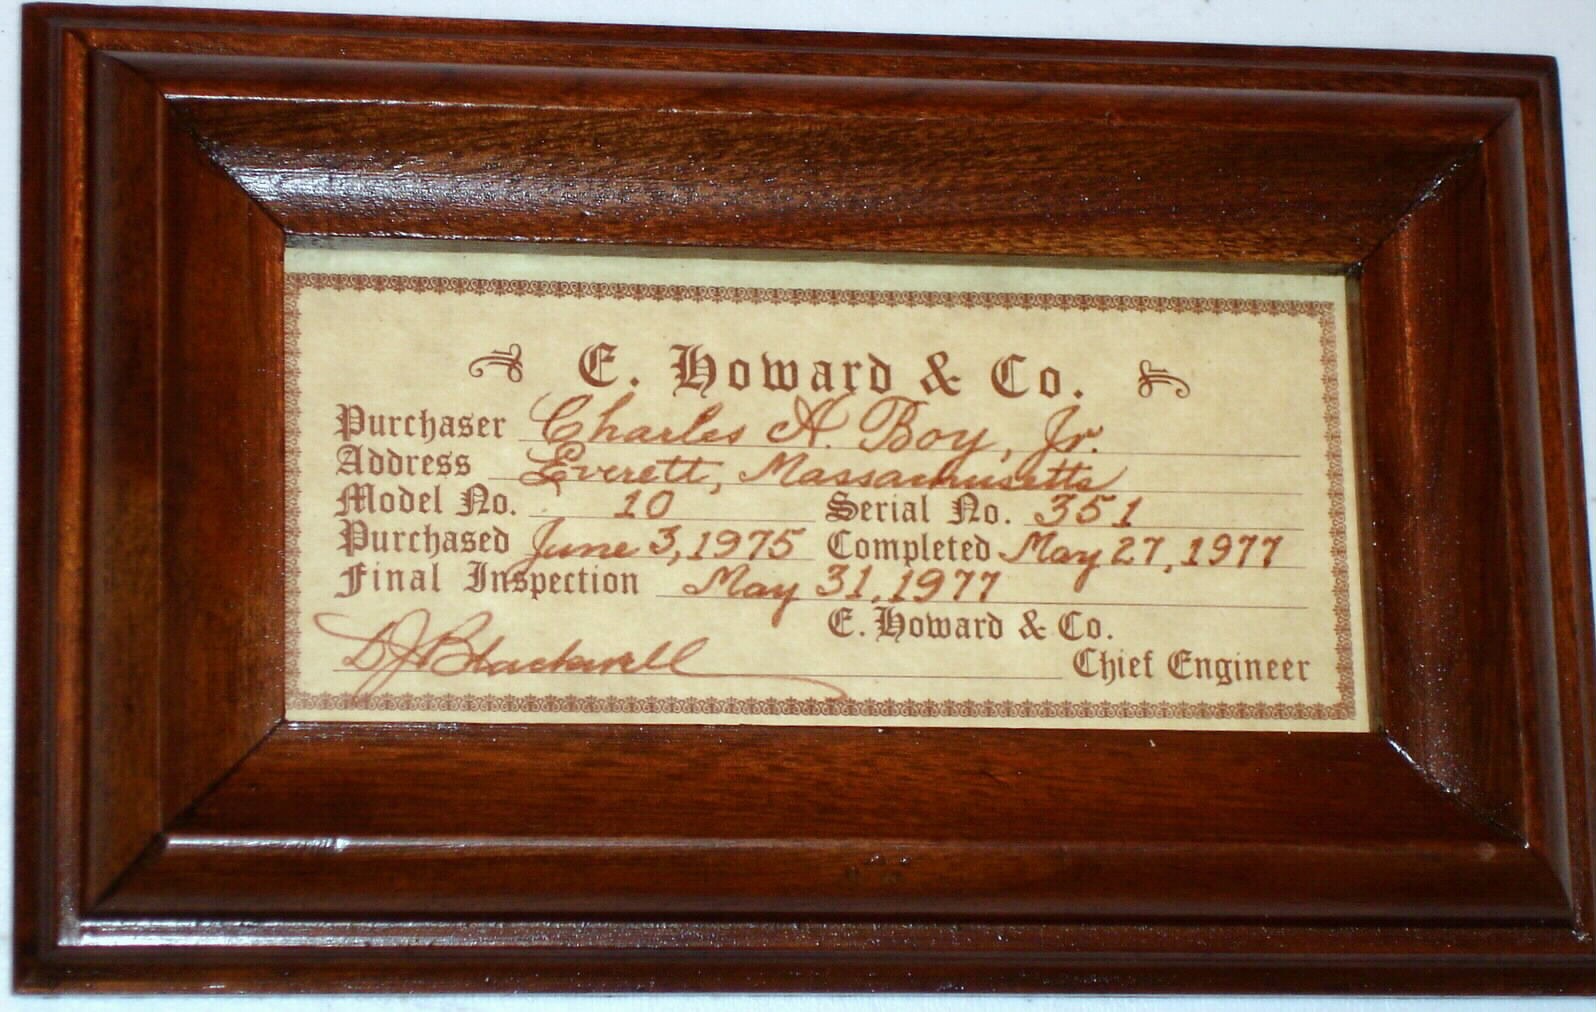 E. Howard & Co.
Purchaser Charles A. Boy, Jr.
Address Everett, Massachusetts
Model No. 10 Serial No. 351
Purchased June 3, 1975 Completed May 27, 1977
Final Inspection May 31, 1977
E. Howard & Co.
D J Blackwell Chief Engineer